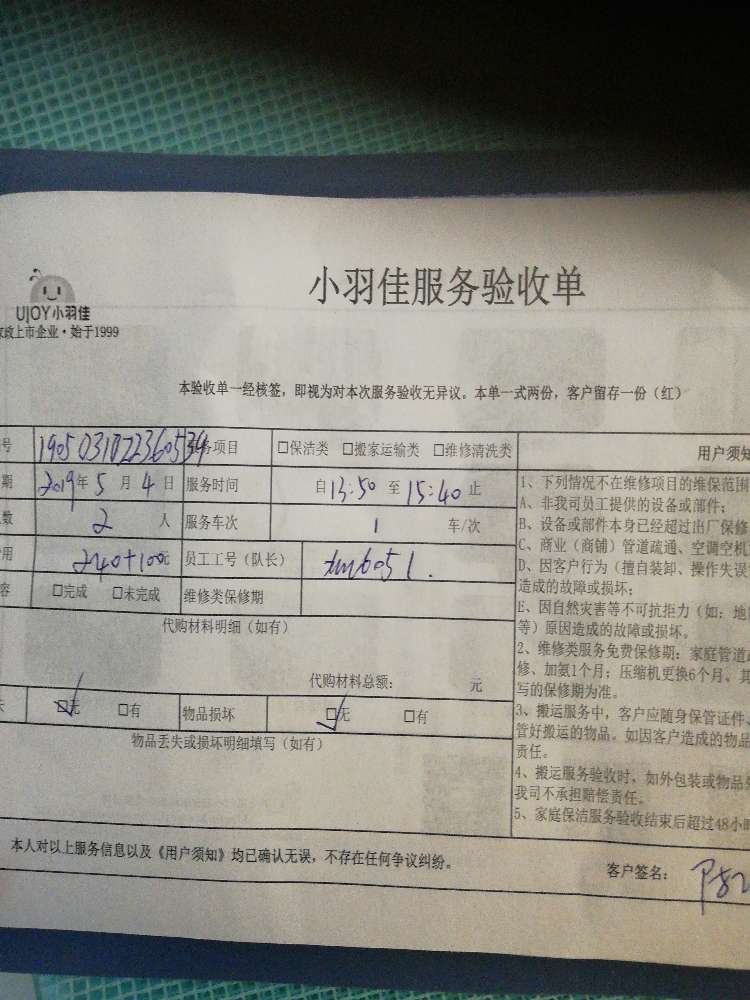 小羽佳服务验收单
UJOY小羽佳
家政上市企业·始于1999
本验收单一经核签，即视为对本次服务验收无异议。本单一式两份，客户留存一份（红）
号 务项目 □保洁类 □搬家运输类 □维修清洗类 用户须知
期 2019年5月4日 服务时间 自13:50至15:40止
数 2人 服务车次 1 车/次
用 240+100元 员工工号（队长）
容 □完成 □未完成 维修类保修期
代购材料明细（如有）
代购材料总额： 元
失 ☑无 □有 物品损坏 ☑无 □有
物品丢失或损坏明细填写（如有）
1、下列情况不在维修项目的维保范围
A、非我司员工提供的设备或部件；
B、设备或部件本身已经超过出厂保修
C、商业（商铺）管道疏通、空调空机
D、因客户行为（擅自装卸、操作失误
造成的故障或损坏；
E、因自然灾害等不可抗拒力（如：地
等）原因造成的故障或损坏。
2、维修类服务免费保修期：家庭管道
修、加氨1个月；压缩机更换6个月、其
写的保修期为准。
3、搬运服务中，客户应随身保管证件、
管好搬运的物品。如因客户造成的物品
责任。
4、搬运服务验收时，如外包装或物品
我司不承担赔偿责任。
5、家庭保洁服务验收结束后超过48小时
本人对以上服务信息以及《用户须知》均已确认无误，不存在任何争议纠纷。
客户签名：